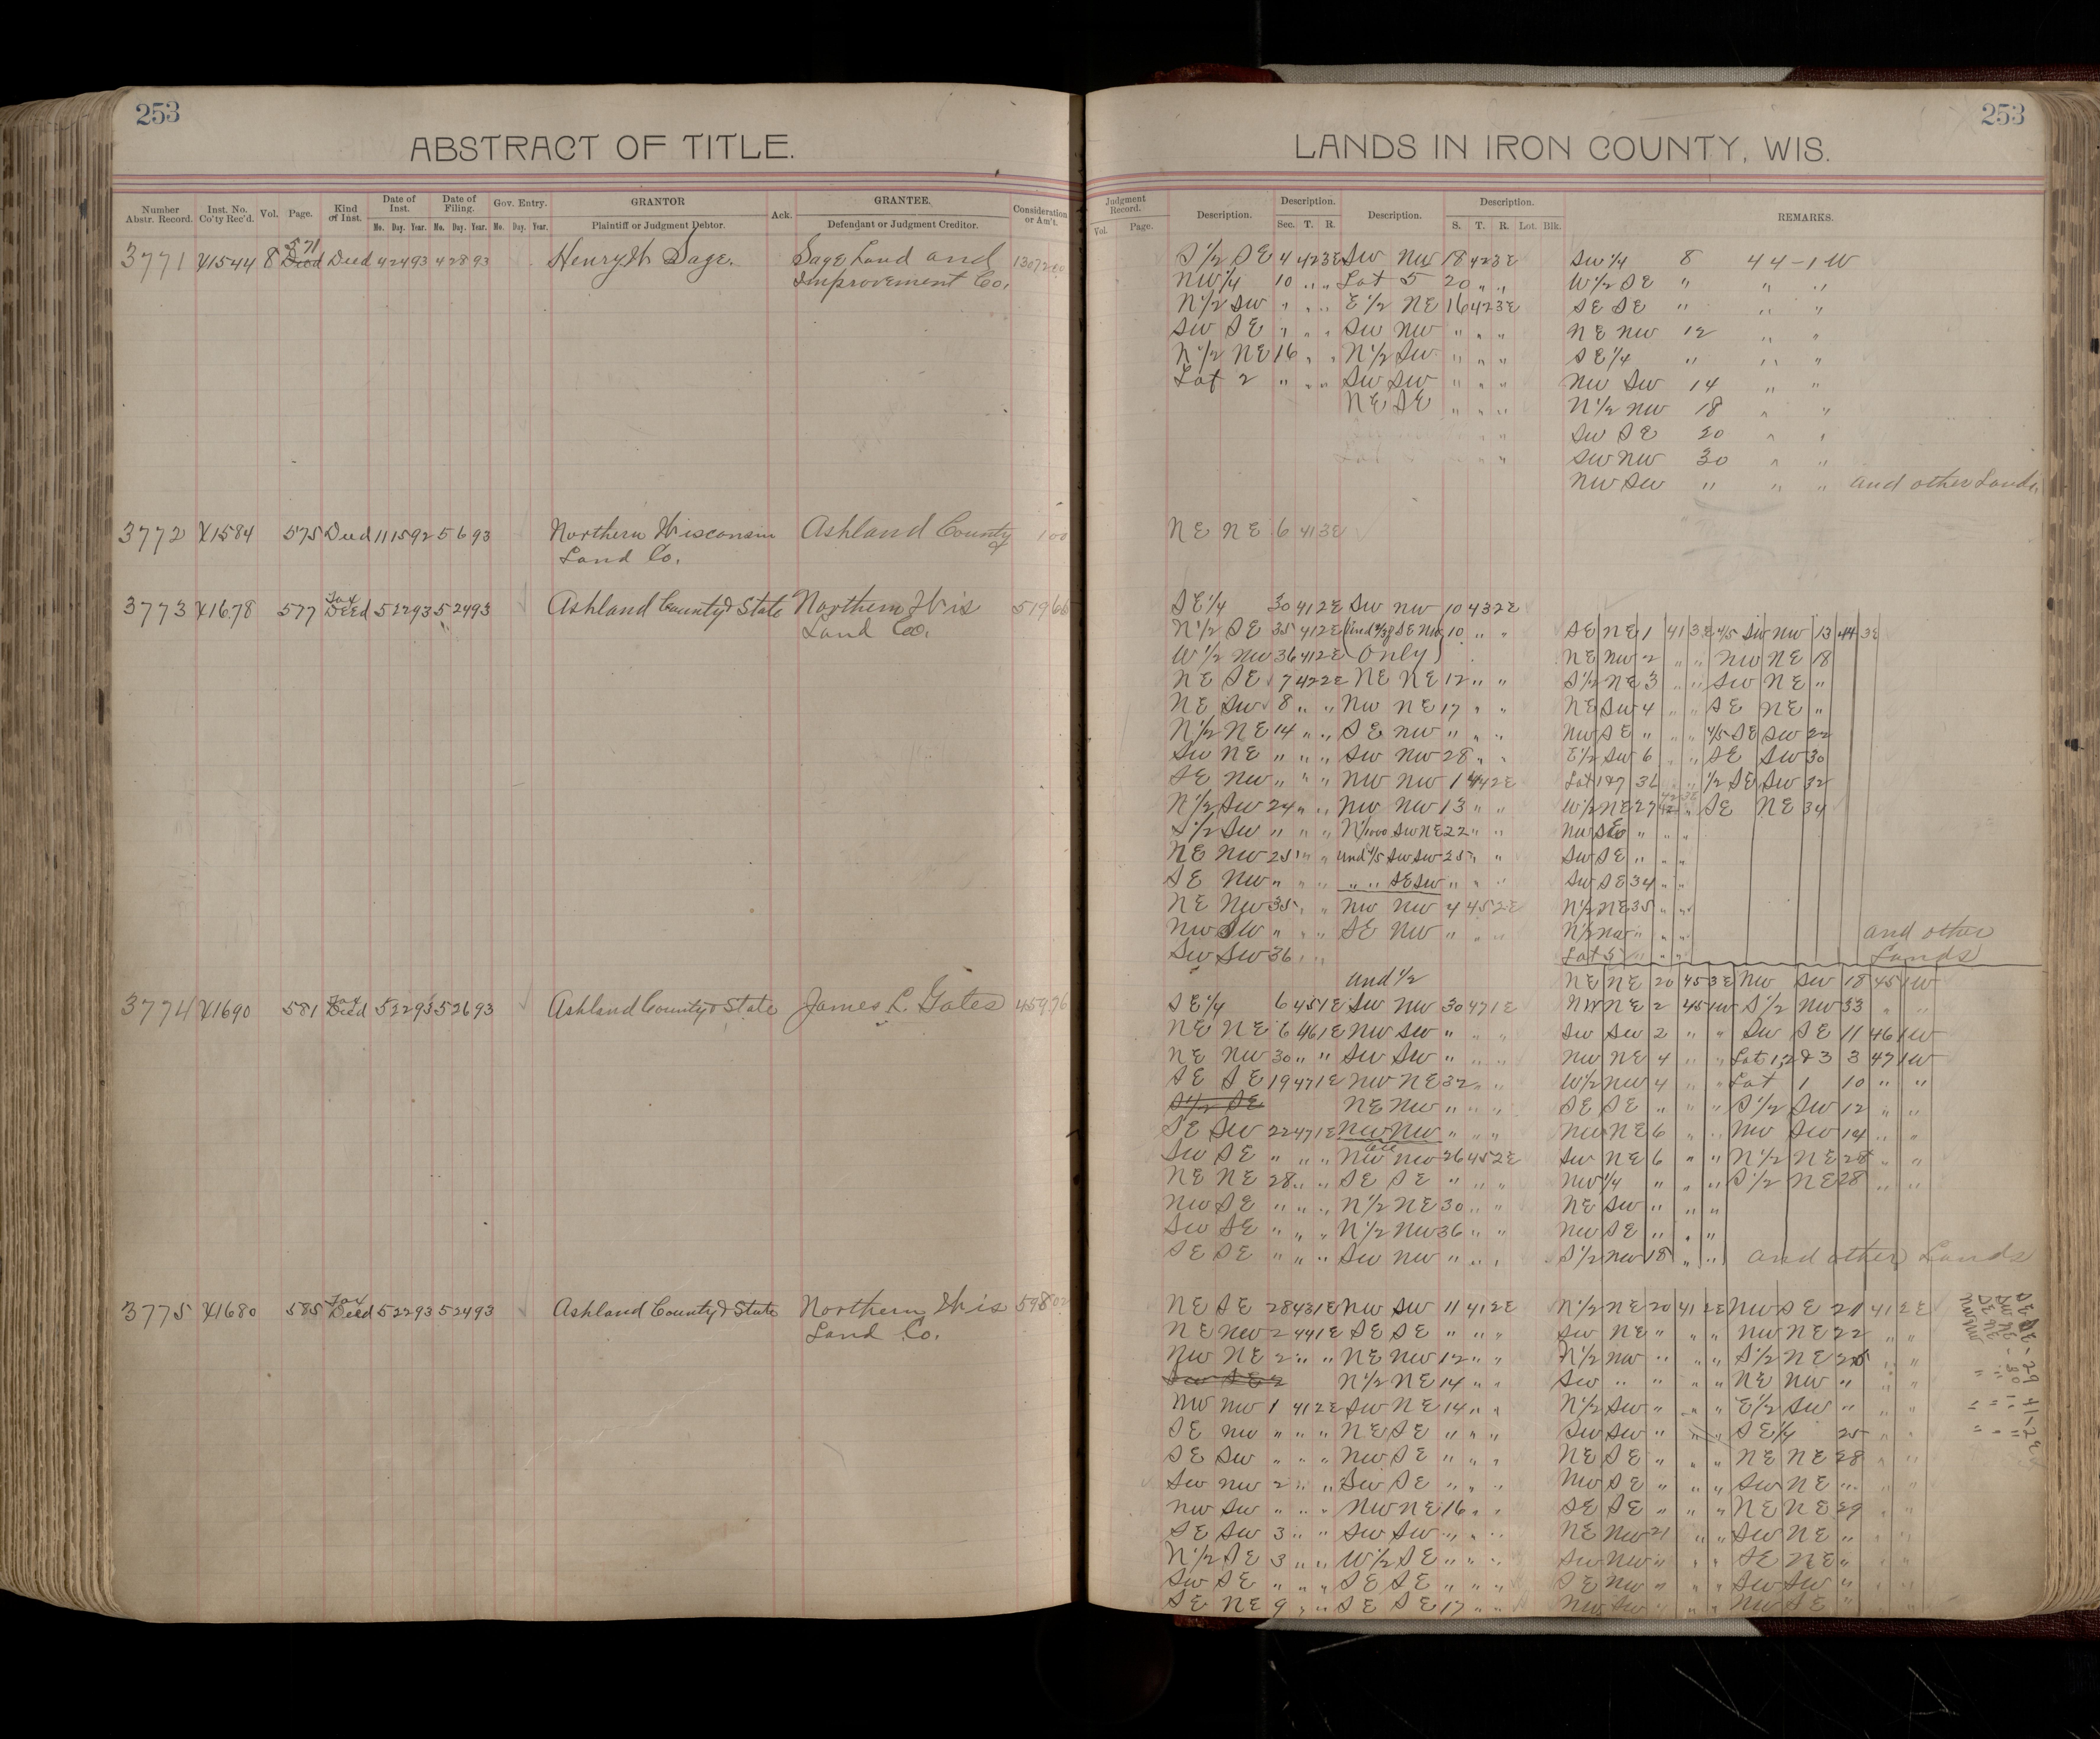 253
ABSTRACT OF TITLE.
Number Abstr. Record. Inst. No. Co'ty Rec'd. Vol. Page. Kind of Inst. Date of Inst. Mo. Day. Year. Date of Filing. Mo. Day. Year. Gov. Entry. Mo. Day. Year. GRANTOR Plaintiff or Judgment Debtor. Ack. GRANTEE. Defendant or Judgment Creditor. Consideration or Am't.
3771 41544 8 571 Deed 4 24 93 4 28 93 Henry W Sage. Sage Land and
Improvement Co.
3772 41584 575 Deed 11 15 92 5 6 93 Northern Wisconsin Ashland County 100
Land Co.
3773 41678 577 Tax Deed 5 22 93 5 24 93 Ashland County & State Northern Wis 519
Land Co.
3774 41690 581 Tax Deed 5 22 93 5 26 93 Ashland County & State James L. Gates 459 76
3775 41680 585 Tax Deed 5 22 93 5 24 93 Ashland County & State Northern Wis 598
Land Co.
253
LANDS IN IRON COUNTY, WIS.
Judgment Record. Vol. Page. Description. Description. Sec. T. R. Description. Description. S. T. R. Lot. Blk. REMARKS.
S 1/2 SE 4 42 3E SW NW 18 42 3E SW 1/4 8 44-1W
NW 1/4 10 " " Lot 5 20 " " W 1/2 SE " " "
N 1/2 SW " " " E 1/2 NE 16 42 3E SE SE " " "
SW SE " " " SW NW " " " NE NW 12 " "
N 1/2 NE 16 " " N 1/2 SW " " " SE 1/4 " " "
Lot 2 " " " SW SW " " " NW SW 14 " "
NE SE " " " N 1/2 NW 18 " "
SW SE 20 " "
SW NW 30 " "
NW SW " " " and other Lands,
NE NE 6 41 3E
SE 1/4 30 41 2E SW NW 10 43 2E
N 1/2 SE 35 41 2E SE NW 10 " " SE NE 1 41 3E 4/5 SW NW 13 44 3E
W 1/2 NW 36 41 2E Only) NE NW 2 " " NW NE 18
NE SE 7 42 2E NE NE 12 " " S 1/2 NE 3 " " SW NE "
NE SW 8 " " NW NE 17 " " NE SW 4 " " SE NE "
N 1/2 NE 14 " " SE NW " " " NW SE " " " 4/5 SE SW 22
SW NE " " " SW NW 28 " " E 1/2 SW 6 " " SE SW 30
SE NW " " " NW NW 1 44 2E Lot 1 & 7 " " 1/2 SE SW 32
N 1/2 SW 24 " " NW NW 13 " " W 1/2 NE 27 42 3E SE NE 34
S 1/2 SW " " " SW NE 22 " " NW SE " " "
NE NW 25 " " und 4/5 SW SW 25 " " SW SE " " "
SE NW " " " " " SE SW " " " SW SE 34 " "
NE NW 35 " " NW NW 4 45 2E N 1/2 NE 35 " "
NW SW " " " SE NW " " " N 1/2 NW " " " and other
SW SW 36 " " Lot 5 " " " Lands
und 1/2 NE NE 20 45 3E NW SW 18 45 1W
SE 1/4 6 45 1E SW NW 30 47 1E NW NE 2 45 1W S 1/2 NW 33 " "
NE NE 6 46 1E NW SW " " " SW SW 2 " " SW SE 11 46 1W
NE NW 30 " " SW SW " " " NW NE 4 " " Lot 1, 2 & 3 3 47 1W
SE SE 19 47 1E NW NE 32 " " W 1/2 NW 4 " " Lot 1 10 " "
S 1/2 SE NE NW " " " SE SE " " " S 1/2 SW 12 " "
SE SW 22 47 1E NW NW " " " NW NE 6 " " NW SW 14 " "
SW SE " " " NW NW 26 45 2E SW NE 6 " " N 1/2 NE 28 " "
NE NE 28 " " SE SE " " " NW 1/4 " " " S 1/2 NE 28 " "
NW SE " " " N 1/2 NE 30 " " NE SW " " "
SW SE " " " N 1/2 NW 36 " " NW SE " " "
SE SE " " " SW NW " " " S 1/2 NW 18 " " and other Lands
NE SE 28 43 1E NW SW 11 41 2E N 1/2 NE 20 41 2E NW SE 21 41 2E
NE NW 2 44 1E SE SE " " " SW NE " " " NW NE 22 " "
NW NE 2 " " NE NW 12 " " N 1/2 NW " " " S 1/2 NE 25 " "
SW SE 2 N 1/2 NE 14 " " SW " " " " NE NW " " "
NW NW 1 41 2E SW NE 14 " " N 1/2 SW " " " E 1/2 SW " " "
SE NW " " " NE SE " " " SW SW " " " SE 1/4 25 " "
SE SW " " " NW SE " " " NE SE " " " NE NE 28 " "
SW NW 2 " " SW SE " " " NW SE " " " SW NE " " "
NW SW " " " NW NE 16 " " SE SE " " " NE NE 29 " "
SE SW 3 " " SW SW " " " NE NW 21 " " SW NE " " "
N 1/2 SE 3 " " W 1/2 SE " " " SW NW " " " SE NE " " "
SW SE " " " SE SE " " " SE NW " " " SW SW " " "
SE NE 9 " " SE SE 17 " " NW SW " " " NW SE " " "